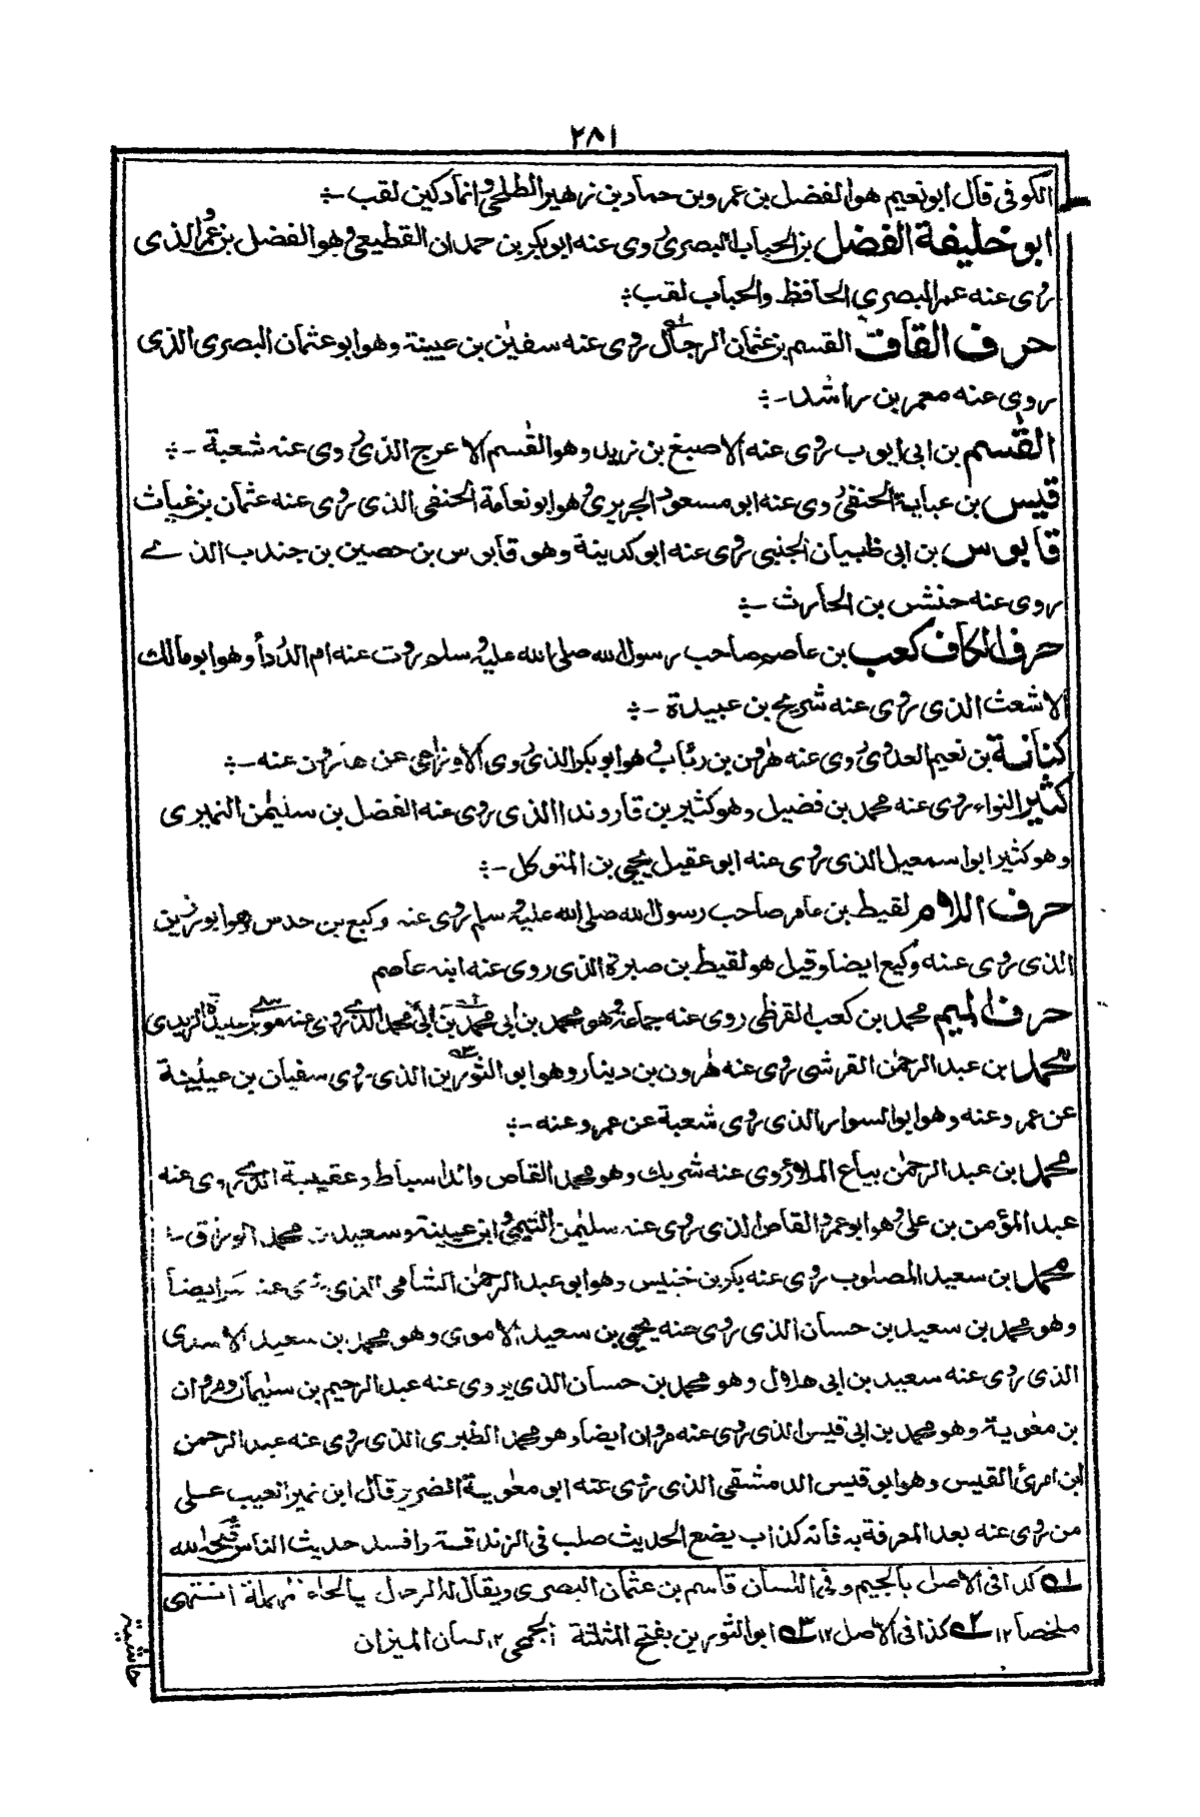 ٢٨١
الكوفى قال ابونعيم هو الفضل بن عمرو بن حماد بن زهير الطلحى وانما دكين لقب ÷
ابو خليفة الفضل بن الحباب البصرى روى عنه ابوبكر بن حمدان القطيعى وهو الفضل بن عمر الذى
روى عنه عمر البصرى الحافظ والحباب لقب ÷
حرف القاف القسم بن عثمان الرجال روى عنه سفين بن عيينة وهو ابو عثمان البصرى الذى
روى عنه معمر بن راشد -÷
القسم بن ابى ايوب روى عنه الاصبغ بن زيد وهو القسم الاعرج الذى روى عنه شعبة -÷
قيس بن عباية الحنفى روى عنه ابو مسعود الجريرى وهو ابو نعامة الحنفى الذى روى عنه عثمان بن غياث
قابوس بن ابى ظبيان الجنبى روى عنه ابو كدينة وهو قابوس بن حصين بن جندب الذى
روى عنه حنش بن الحارث -÷
حرف الكاف كعب بن عاصم صاحب رسول الله صلى الله عليه وسلم روت عنه ام الدرداء وهو ابو مالك
الاشعث الذى روى عنه شريح بن عبيدة -÷
كنانة بن نعيم العدوى روى عنه هرون بن رئاب وهو ابو بكر الذى روى الاوزاعى عن هارون عنه -÷
كثير النواء روى عنه محمد بن فضيل وهو كثير بن قاروندا الذى روى عنه الفضل بن سليمن النميرى
وهو كثير ابو اسمعيل الذى روى عنه ابو عقيل يحيى بن المتوكل -÷
حرف اللام لقيط بن عامر صاحب رسول الله صلى الله عليه وسلم روى عنه وكيع بن حدس وهو ابو رزين
الذى روى عنه وكيع ايضا وقيل هو لقيط بن صبرة الذى روى عنه ابنه عاصم
حرف الميم محمد بن كعب القرظى روى عنه جماعة وهو محمد بن ابى محمد بن ابى محمد الذى روى عنه موسى بن عبيدة الربذى
محمد ابن عبد الرحمن القرشى روى عنه هرون بن دينار وهو ابو الثورين الذى روى سفيان بن عيينة
عن عمرو عنه وهو ابو السوار الذى روى شعبة عن عمرو عنه -÷
محمد ابن عبد الرحمن بياع الملاء روى عنه شريك وهو محمد القاص والد اسباط وعقيبة الذى روى عنه
عبد المؤمن بن على وهو ابو عمرو القاص الذى روى عنه سليمن التيمى وابن عيينة وسعيد بن محمد الوراق -÷
محمد ابن سعيد المصلوب روى عنه بكر بن خنيس وهو ابو عبد الرحمن الشامى الذى روى عنه بكر ايضا
وهو محمد بن سعيد بن حسان الذى روى عنه يحيى بن سعيد الاموى وهو محمد بن سعيد الاسدى
الذى روى عنه سعيد بن ابى هلال وهو محمد بن حسان الذى يروى عنه عبد الرحيم بن سليمان ومروان
بن معوية وهو محمد بن ابى قيس الذى روى عنه مروان ايضا وهو محمد الطبرى الذى روى عنه عبد الرحمن
ابن امرئ القيس وهو ابو قيس الدمشقى الذى روى عنه ابو معوية الضرير قال ابن نمير العيب على
من روى عنه بعد المعرفة به فانه كذاب يضع الحديث صلب فى الزندقة وافسد حديث الناس قبحه الله
١ـه كذا فى الاصل بالجيم وفى اللسان قاسم بن عثمان البصرى ويقال له الرحال بالحاء مهملة انتهى
ملخصا ١٢ ٢ـه كذا فى الاصل ١٢ ٣ـه ابو الثورين بفتح المثلثة الجمحى ١٢ لسان الميزان
حاشية